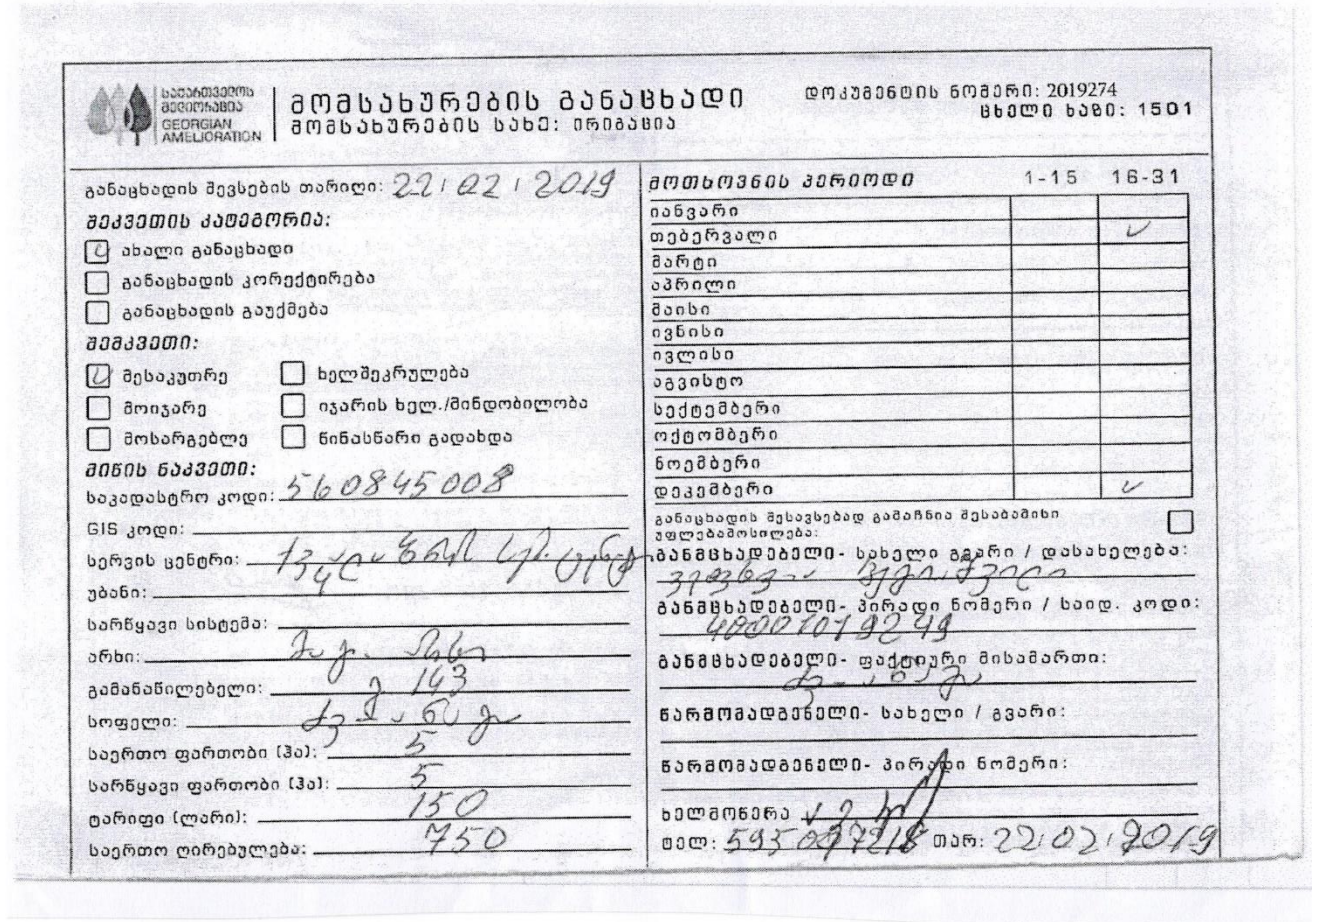 საქართველოს
მელიორაცია
GEORGIAN
AMELIORATION
მომსახურების განაცხადი
მომსახურების სახე: ირიგაცია
დოკუმენტის ნომერი: 2019274
ცხელი ხაზი: 1501
განაცხადის შევსების თარიღი: 22/02/2019
შეკვეთის კატეგორია:
ახალი განაცხადი
განაცხადის კორექტირება
განაცხადის გაუქმება
შემკვეთი:
მესაკუთრე ხელშეკრულება
მოიჯარე იჯარის ხელ./მინდობილობა
მოსარგებლე წინასწარი გადახდა
მიწის ნაკვეთი:
საკადასტრო კოდი: 560845008
GIS კოდი:
სერვის ცენტრი:
უბანი:
სარწყავი სისტემა:
არხი:
გამანაწილებელი: გ 143
სოფელი:
საერთო ფართობი (ჰა): 5
სარწყავი ფართობი (ჰა): 5
ტარიფი (ლარი): 150
საერთო ღირებულება: 750
მოთხოვნის პერიოდი 1-15 16-31
იანვარი
თებერვალი
მარტი
აპრილი
მაისი
ივნისი
ივლისი
აგვისტო
სექტემბერი
ოქტომბერი
ნოემბერი
დეკემბერი
განაცხადის შესავსებად გამაჩნია შესაბამისი
უფლებამოსილება:
განმცხადებელი- სახელი გვარი / დასახელება:
განმცხადებელი- პირადი ნომერი / საიდ. კოდი:
40001019249
განმცხადებელი- ფაქტიური მისამართი:
წარმომადგენელი- სახელი / გვარი:
წარმომადგენელი- პირადი ნომერი:
ხელმოწერა
ტელ: თარ: 22/02/2019